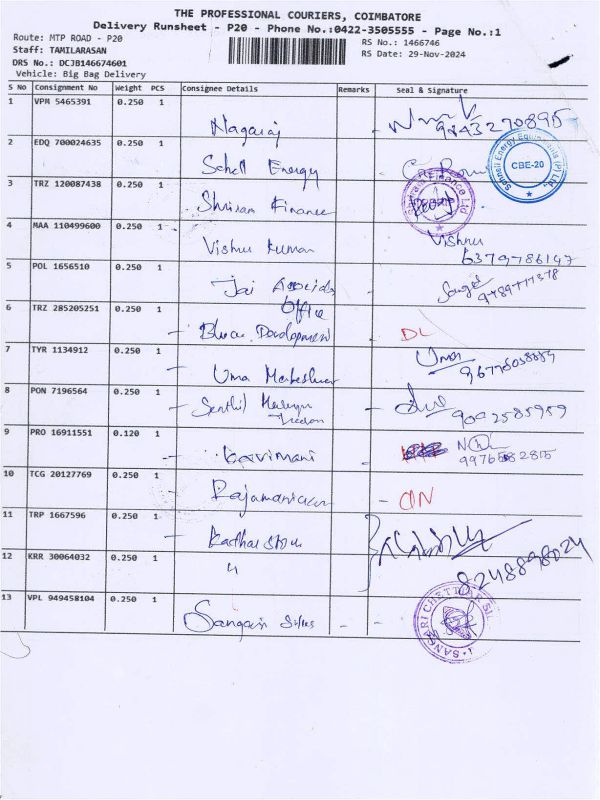 THE PROFESSIONAL COURIERS, COIMBATORE
Delivery Runsheet - P20 - Phone No.:0422-3505555 - Page No.:1
Route: MTP ROAD - P20
RS No.: 1466746
Staff: TAMILARASAN
RS Date: 29-Nov-2024
DRS No.: DCJB146674601
Vehicle: Big Bag Delivery
S No Consignment No Weight PCS Consignee Details Remarks Seal & Signature
1 VPM 5465391 0.250 1
Nagaraj - 9843270895
2 EDQ 700024635 0.250 1
Schell Energy
CBE-20
3 TRZ 120087438 0.250 1
Shriram Finance
4 MAA 110499600 0.250 1
Vishnu Kumar Vishnu
6379786147
5 POL 1656510 0.250 1
Jai
office
6 TRZ 285205251 0.250 1
- Development DL
7 TYR 1134912 0.250 1
- Uma Uma
8 PON 7196564 0.250 1
- Senthil -
9 PRO 16911551 0.120 1
- Kavimani -
10 TCG 20127769 0.250 1
Rajamanickam -
11 TRP 1667596 0.250 1
- Kadhar Store
12 KRR 30064032 0.250 1
"
8248898024
13 VPL 949458104 0.250 1
- -